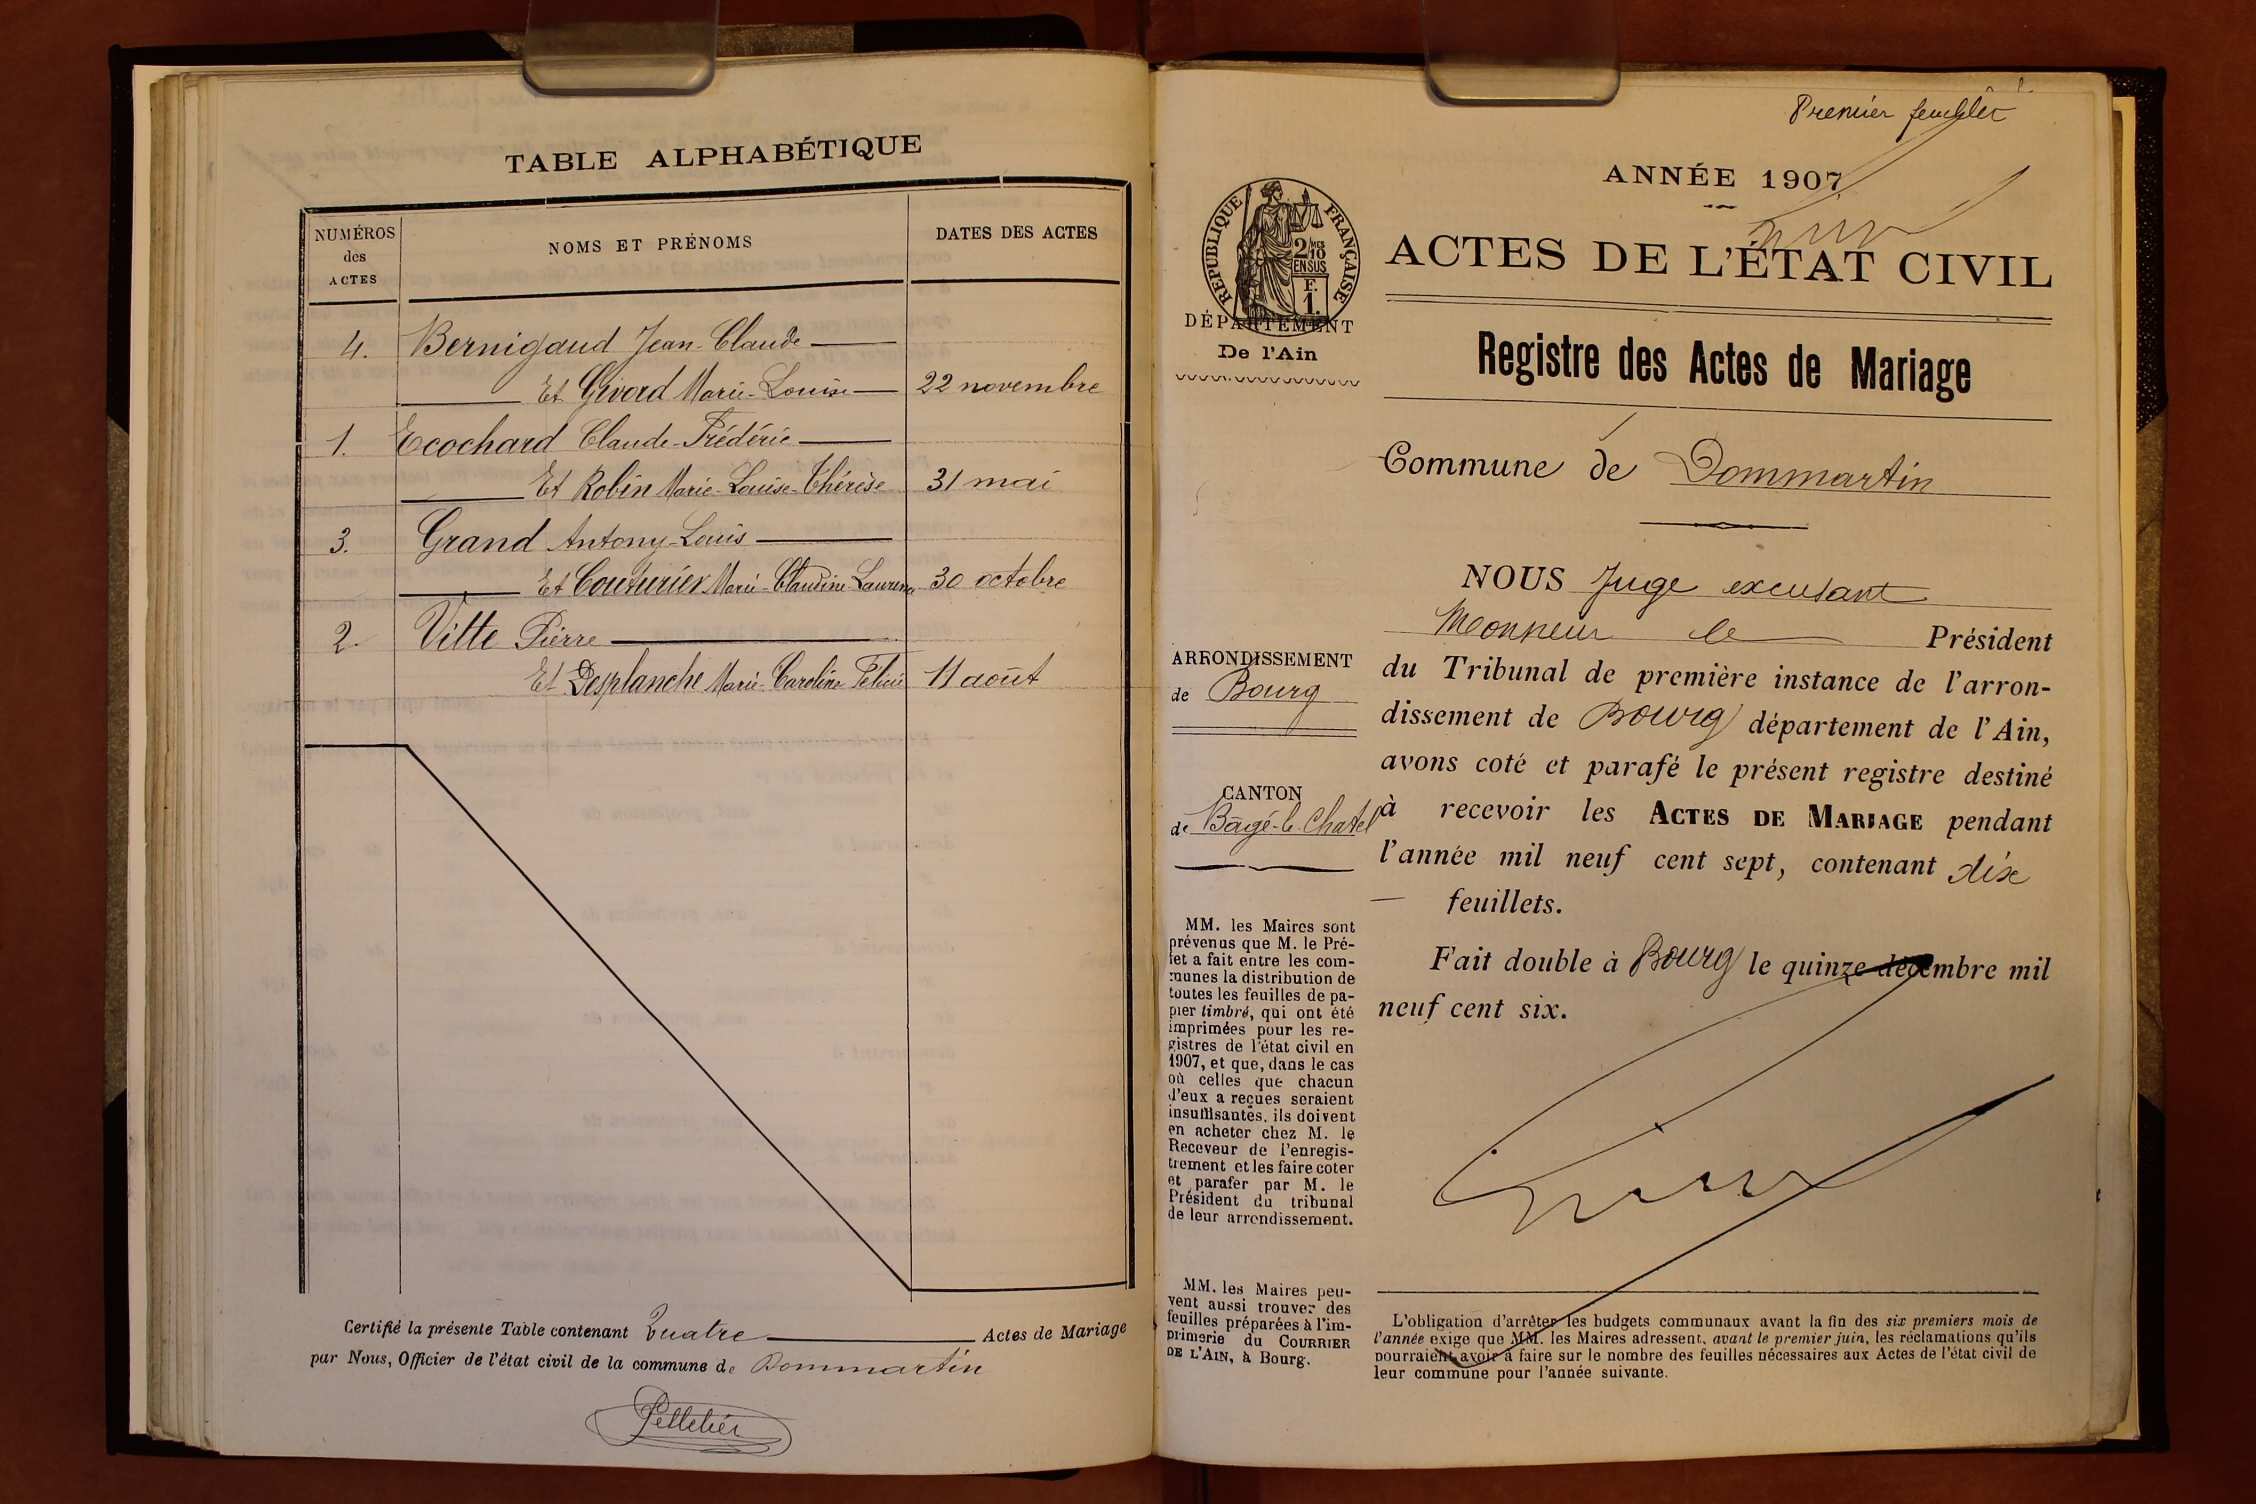 TABLE ALPHABÉTIQUE
NUMÉROS
des
ACTES
NOMS ET PRÉNOMS
DATES DES ACTES
4. Bernigaud Jean-Claude
Et Givord Marie-Louise 22 novembre
1. Ecochard Claude-Frédéric
Et Robin Marie-Louise-Thérèse 31 mai
3. Grand Antony-Louis
Et Couturier Marie-Claudine-Laurence 30 octobre
2. Vitte Pierre
Et Desplanche Marie-Caroline 11 août
Certifié la présente Table contenant Quatre Actes de Mariage
par Nous, Officier de l'état civil de la commune de Dommartin
Pelletier
Premier feuillet
ANNÉE 1907
RÉPUBLIQUE FRANÇAISE
2/10 MES
EN SUS
F.
1.
DÉPARTEMENT
De l'Ain
ACTES DE L'ÉTAT CIVIL
Registre des Actes de Mariage
Commune de Dommartin
ARRONDISSEMENT
de Bourg
CANTON
de Bâgé-le-Chatel
MM. les Maires sont
prévenus que M. le Pré-
fet a fait entre les com-
munes la distribution de
toutes les feuilles de pa-
pier timbré, qui ont été
imprimées pour les re-
gistres de l'état civil en
1907, et que, dans le cas
où celles que chacun
d'eux a reçues seraient
insuffisantes, ils doivent
en acheter chez M. le
Receveur de l'enregis-
trement et les faire coter
et parafer par M. le
Président du tribunal
de leur arrondissement.
MM. les Maires peu-
vent aussi trouver des
feuilles préparées à l'im-
primerie du COURRIER
DE L'AIN, à Bourg.
NOUS Juge excusant
Monsieur le Président
du Tribunal de première instance de l'arron-
dissement de Bourg département de l'Ain,
avons coté et parafé le présent registre destiné
à recevoir les ACTES DE MARIAGE pendant
l'année mil neuf cent sept, contenant dix
feuillets.
Fait double à Bourg le quinze décembre mil
neuf cent six.
L'obligation d'arrêter les budgets communaux avant la fin des six premiers mois de
l'année exige que MM. les Maires adressent, avant le premier juin, les réclamations qu'ils
pourraient avoir à faire sur le nombre des feuilles nécessaires aux Actes de l'état civil de
leur commune pour l'année suivante.